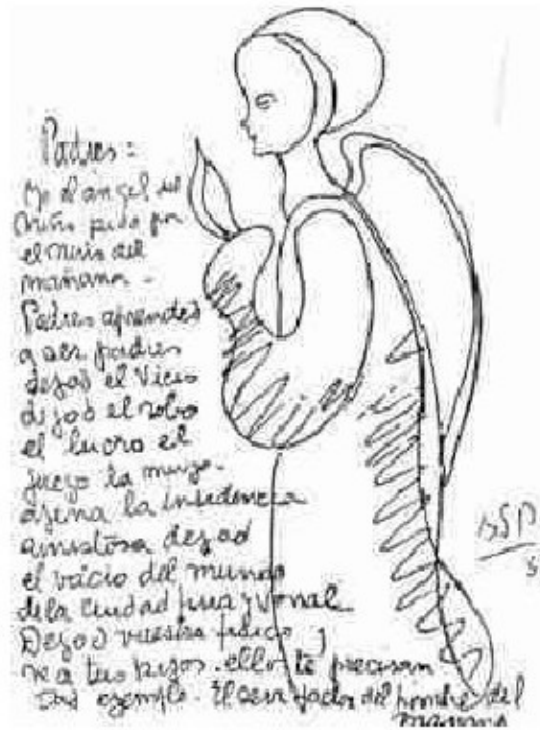 Padres:
Yo el angel del
niño pido por
el niño del
mañana.
Padres aprended
a ser padres
dejad el vicio
dejad el robo
el lucro el
juego la mujer
ajena la insidencia
amistosa dejad
el vacio del mundo
de la ciudad
Dejad vuestra
ve a tus hijos. ellos te precisan
ejemplo. El sera del hombre del
mañana
BSP